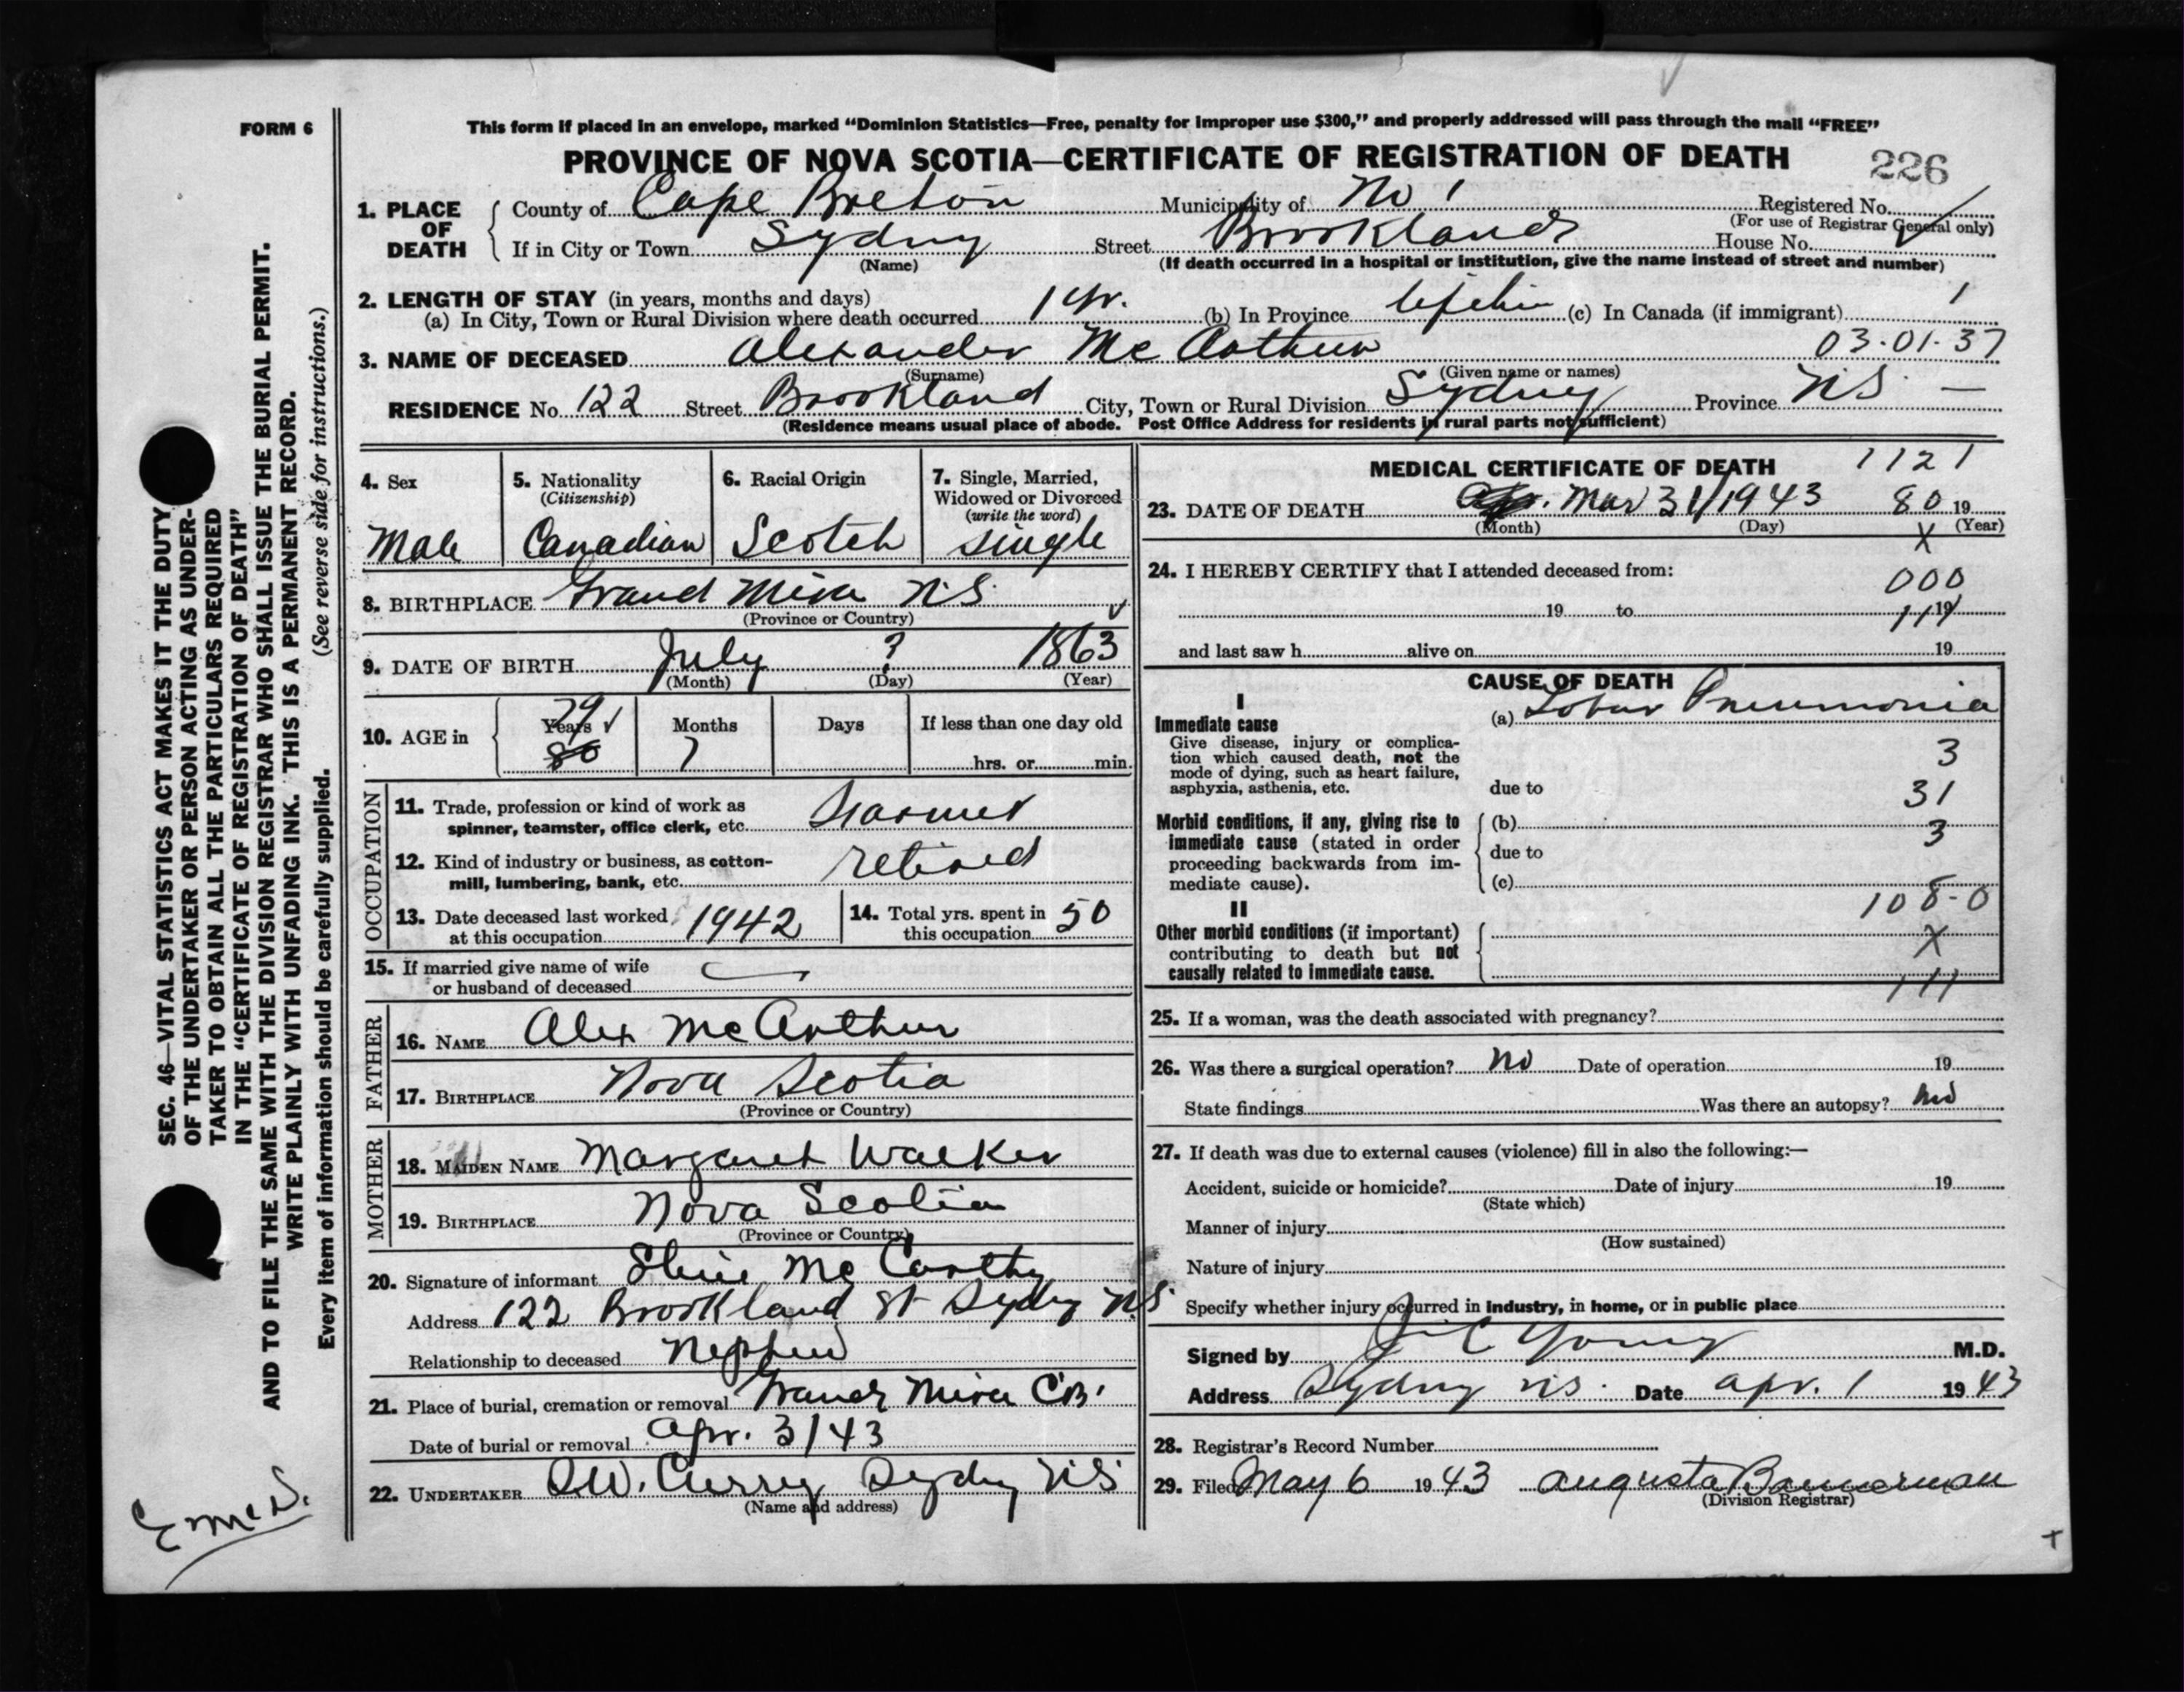 FORM 6
This form if placed in an envelope, marked “Dominion Statistics—Free, penalty for improper use $300,” and properly addressed will pass through the mail “FREE”
PROVINCE OF NOVA SCOTIA—CERTIFICATE OF REGISTRATION OF DEATH 226
1. PLACE OF DEATH County of Cape Breton Municipality of No 1 Registered No.
(For use of Registrar General only)
If in City or Town Sydney Street Brookland House No.
(Name) (If death occurred in a hospital or institution, give the name instead of street and number)
2. LENGTH OF STAY (in years, months and days)
(a) In City, Town or Rural Division where death occurred 1 yr. (b) In Province (c) In Canada (if immigrant) 1
3. NAME OF DECEASED Alexander Mc Arthur 03-01-37
(Surname) (Given name or names)
RESIDENCE No. 122 Street Brookland City, Town or Rural Division Sydney Province N.S. —
(Residence means usual place of abode. Post Office Address for residents in rural parts not sufficient)
4. Sex 5. Nationality (Citizenship) 6. Racial Origin 7. Single, Married, Widowed or Divorced (write the word)
Male Canadian Scotch single
8. BIRTHPLACE Grand Mira N.S.
(Province or Country)
9. DATE OF BIRTH July ? 1863
(Month) (Day) (Year)
10. AGE in Years 79 80 Months 7 Days If less than one day old
hrs. or min.
OCCUPATION
11. Trade, profession or kind of work as spinner, teamster, office clerk, etc. Farmer
12. Kind of industry or business, as cotton-mill, lumbering, bank, etc. retired
13. Date deceased last worked at this occupation 1942 14. Total yrs. spent in this occupation 50
15. If married give name of wife or husband of deceased —
FATHER
16. NAME Alex McArthur
17. BIRTHPLACE Nova Scotia
(Province or Country)
MOTHER
18. MAIDEN NAME Margaret Walker
19. BIRTHPLACE Nova Scotia
(Province or Country)
20. Signature of informant Mc Carthy
Address 122 Brookland St Sydney N.S.
Relationship to deceased Nephew
21. Place of burial, cremation or removal Grand Mira C.B.
Date of burial or removal Apr. 3/43
22. UNDERTAKER Curry Sydney N.S.
(Name and address)
MEDICAL CERTIFICATE OF DEATH 1121
23. DATE OF DEATH Apr. Mar 31/1943 80 19
(Month) (Day) (Year)
X
24. I HEREBY CERTIFY that I attended deceased from: 000
19 to 19 111
and last saw h alive on 19
CAUSE OF DEATH
I
Immediate cause (a) Lobar Pneumonia
Give disease, injury or complica-
tion which caused death, not the 3
mode of dying, such as heart failure,
asphyxia, asthenia, etc. due to 31
Morbid conditions, if any, giving rise to (b)
immediate cause (stated in order 3
proceeding backwards from im- due to
mediate cause). (c)
II 108-0
Other morbid conditions (if important)
contributing to death but not X
causally related to immediate cause.
111
25. If a woman, was the death associated with pregnancy?
26. Was there a surgical operation? No Date of operation 19
State findings Was there an autopsy? No
27. If death was due to external causes (violence) fill in also the following:—
Accident, suicide or homicide? Date of injury 19
(State which)
Manner of injury
(How sustained)
Nature of injury
Specify whether injury occurred in industry, in home, or in public place
Signed by Young M.D.
Address Sydney N.S. Date Apr. 1 1943
28. Registrar's Record Number
29. Filed May 6 1943 Augusta Bannerman
(Division Registrar)
SEC. 46—VITAL STATISTICS ACT MAKES IT THE DUTY
OF THE UNDERTAKER OR PERSON ACTING AS UNDER-
TAKER TO OBTAIN ALL THE PARTICULARS REQUIRED
IN THE “CERTIFICATE OF REGISTRATION OF DEATH”
AND TO FILE THE SAME WITH THE DIVISION REGISTRAR WHO SHALL ISSUE THE BURIAL PERMIT.
WRITE PLAINLY WITH UNFADING INK. THIS IS A PERMANENT RECORD.
(See reverse side for instructions.)
Every item of information should be carefully supplied.